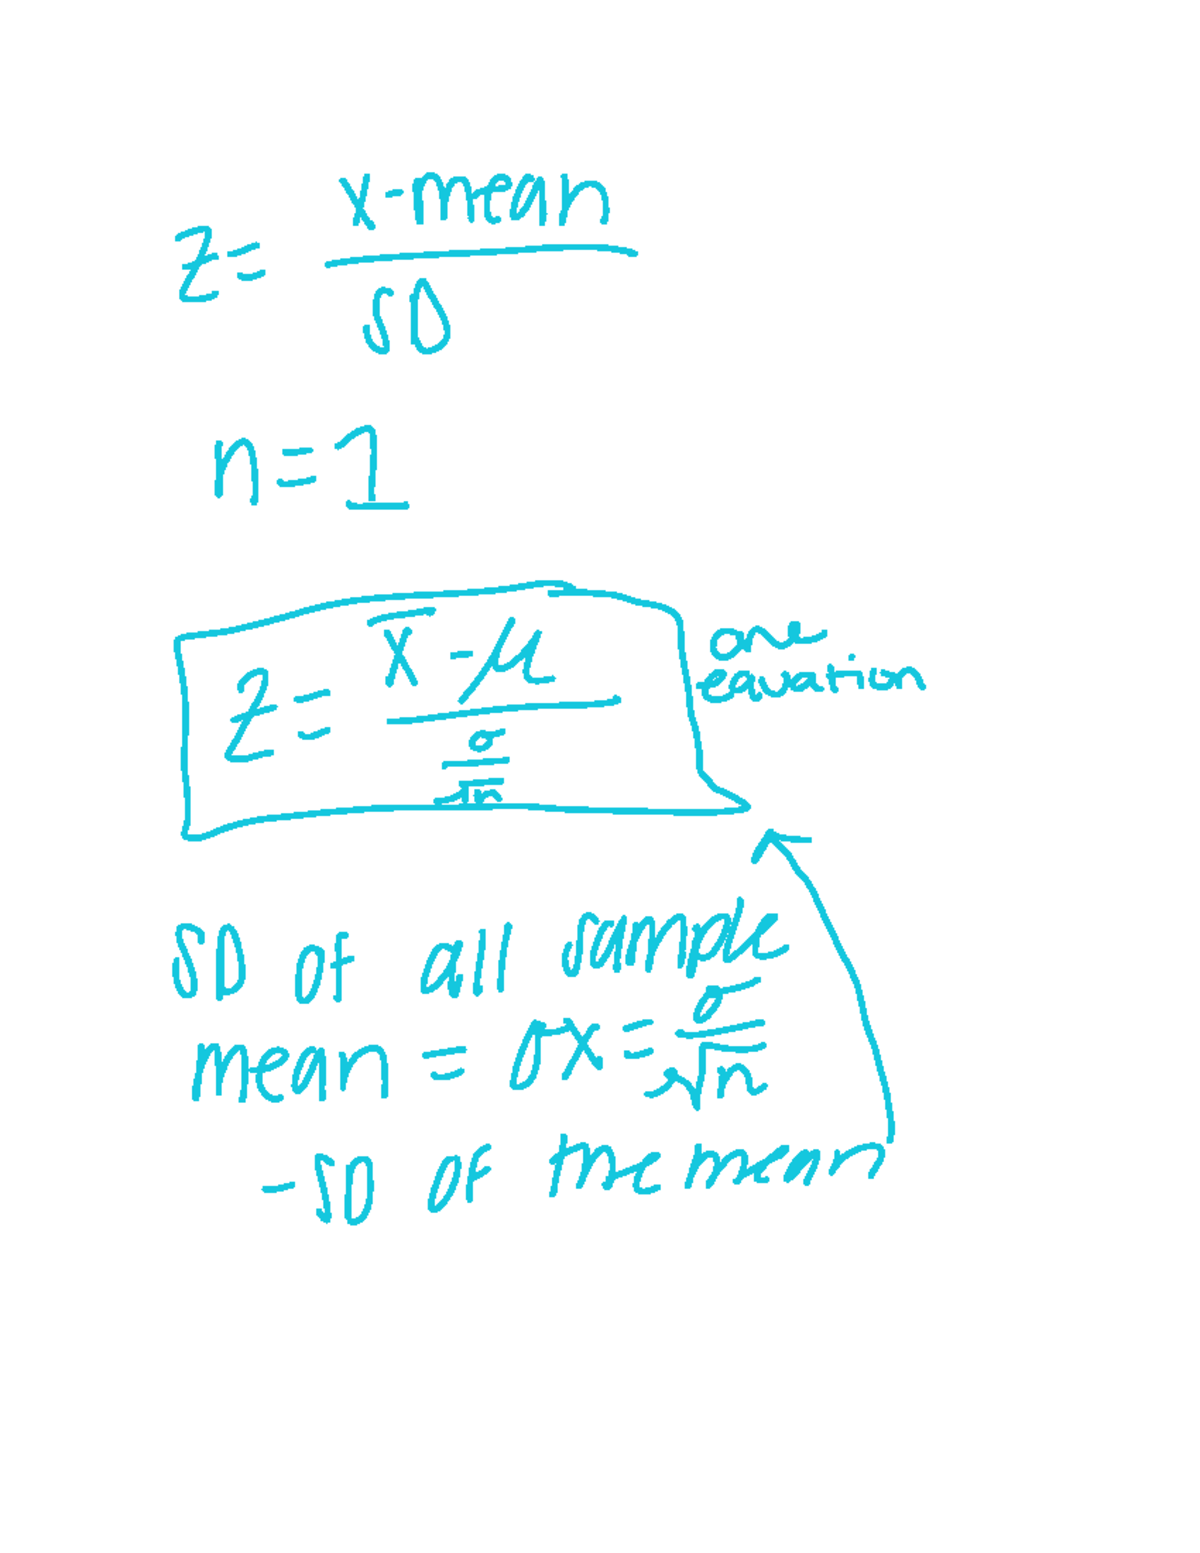 z = x-mean / SD
n=1
z = x̄ - μ / σ/√n
one
equation
SD of all sample
mean = σx = σ/√n
- SD of the mean